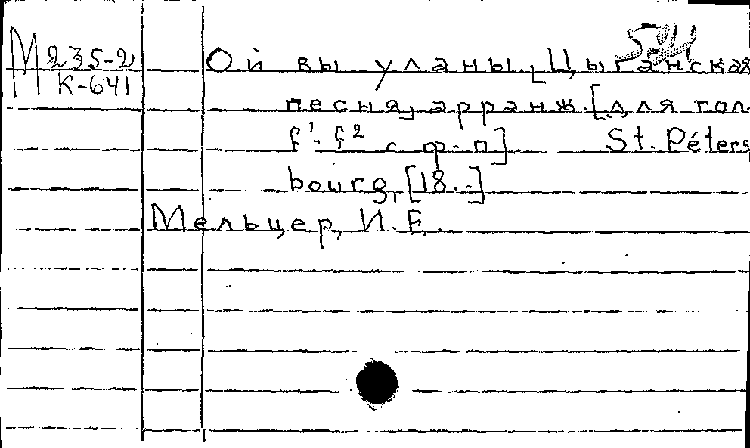 М 235-2
К-641
Ой вы уланы, Цыганская
песня, арранж. [для гол.
f¹-f² с ф-п] St. Péters-
bourg, [18..]
Мельцер, И.Е.